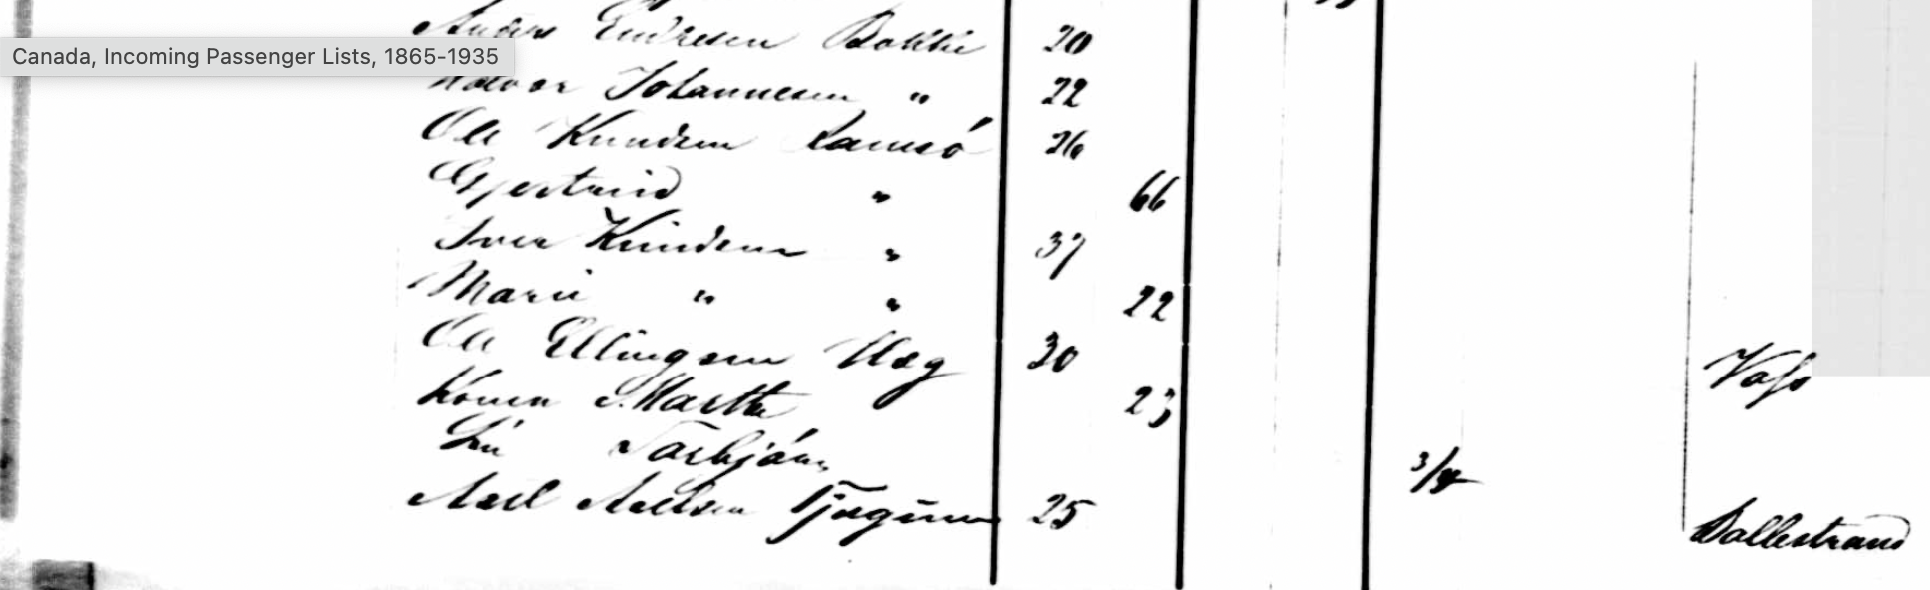 Anders Endresen Bakke 20
Canada, Incoming Passenger Lists, 1865-1935
Johannesen " 22
Ole Knudsen 26
Gjertrud " 66
Iver Knudsen " 37
Mari " " 22
Ole Ellingsen 30
Voss
Konen Martha 23
Torbjörn 3/4
25
Ballestrand